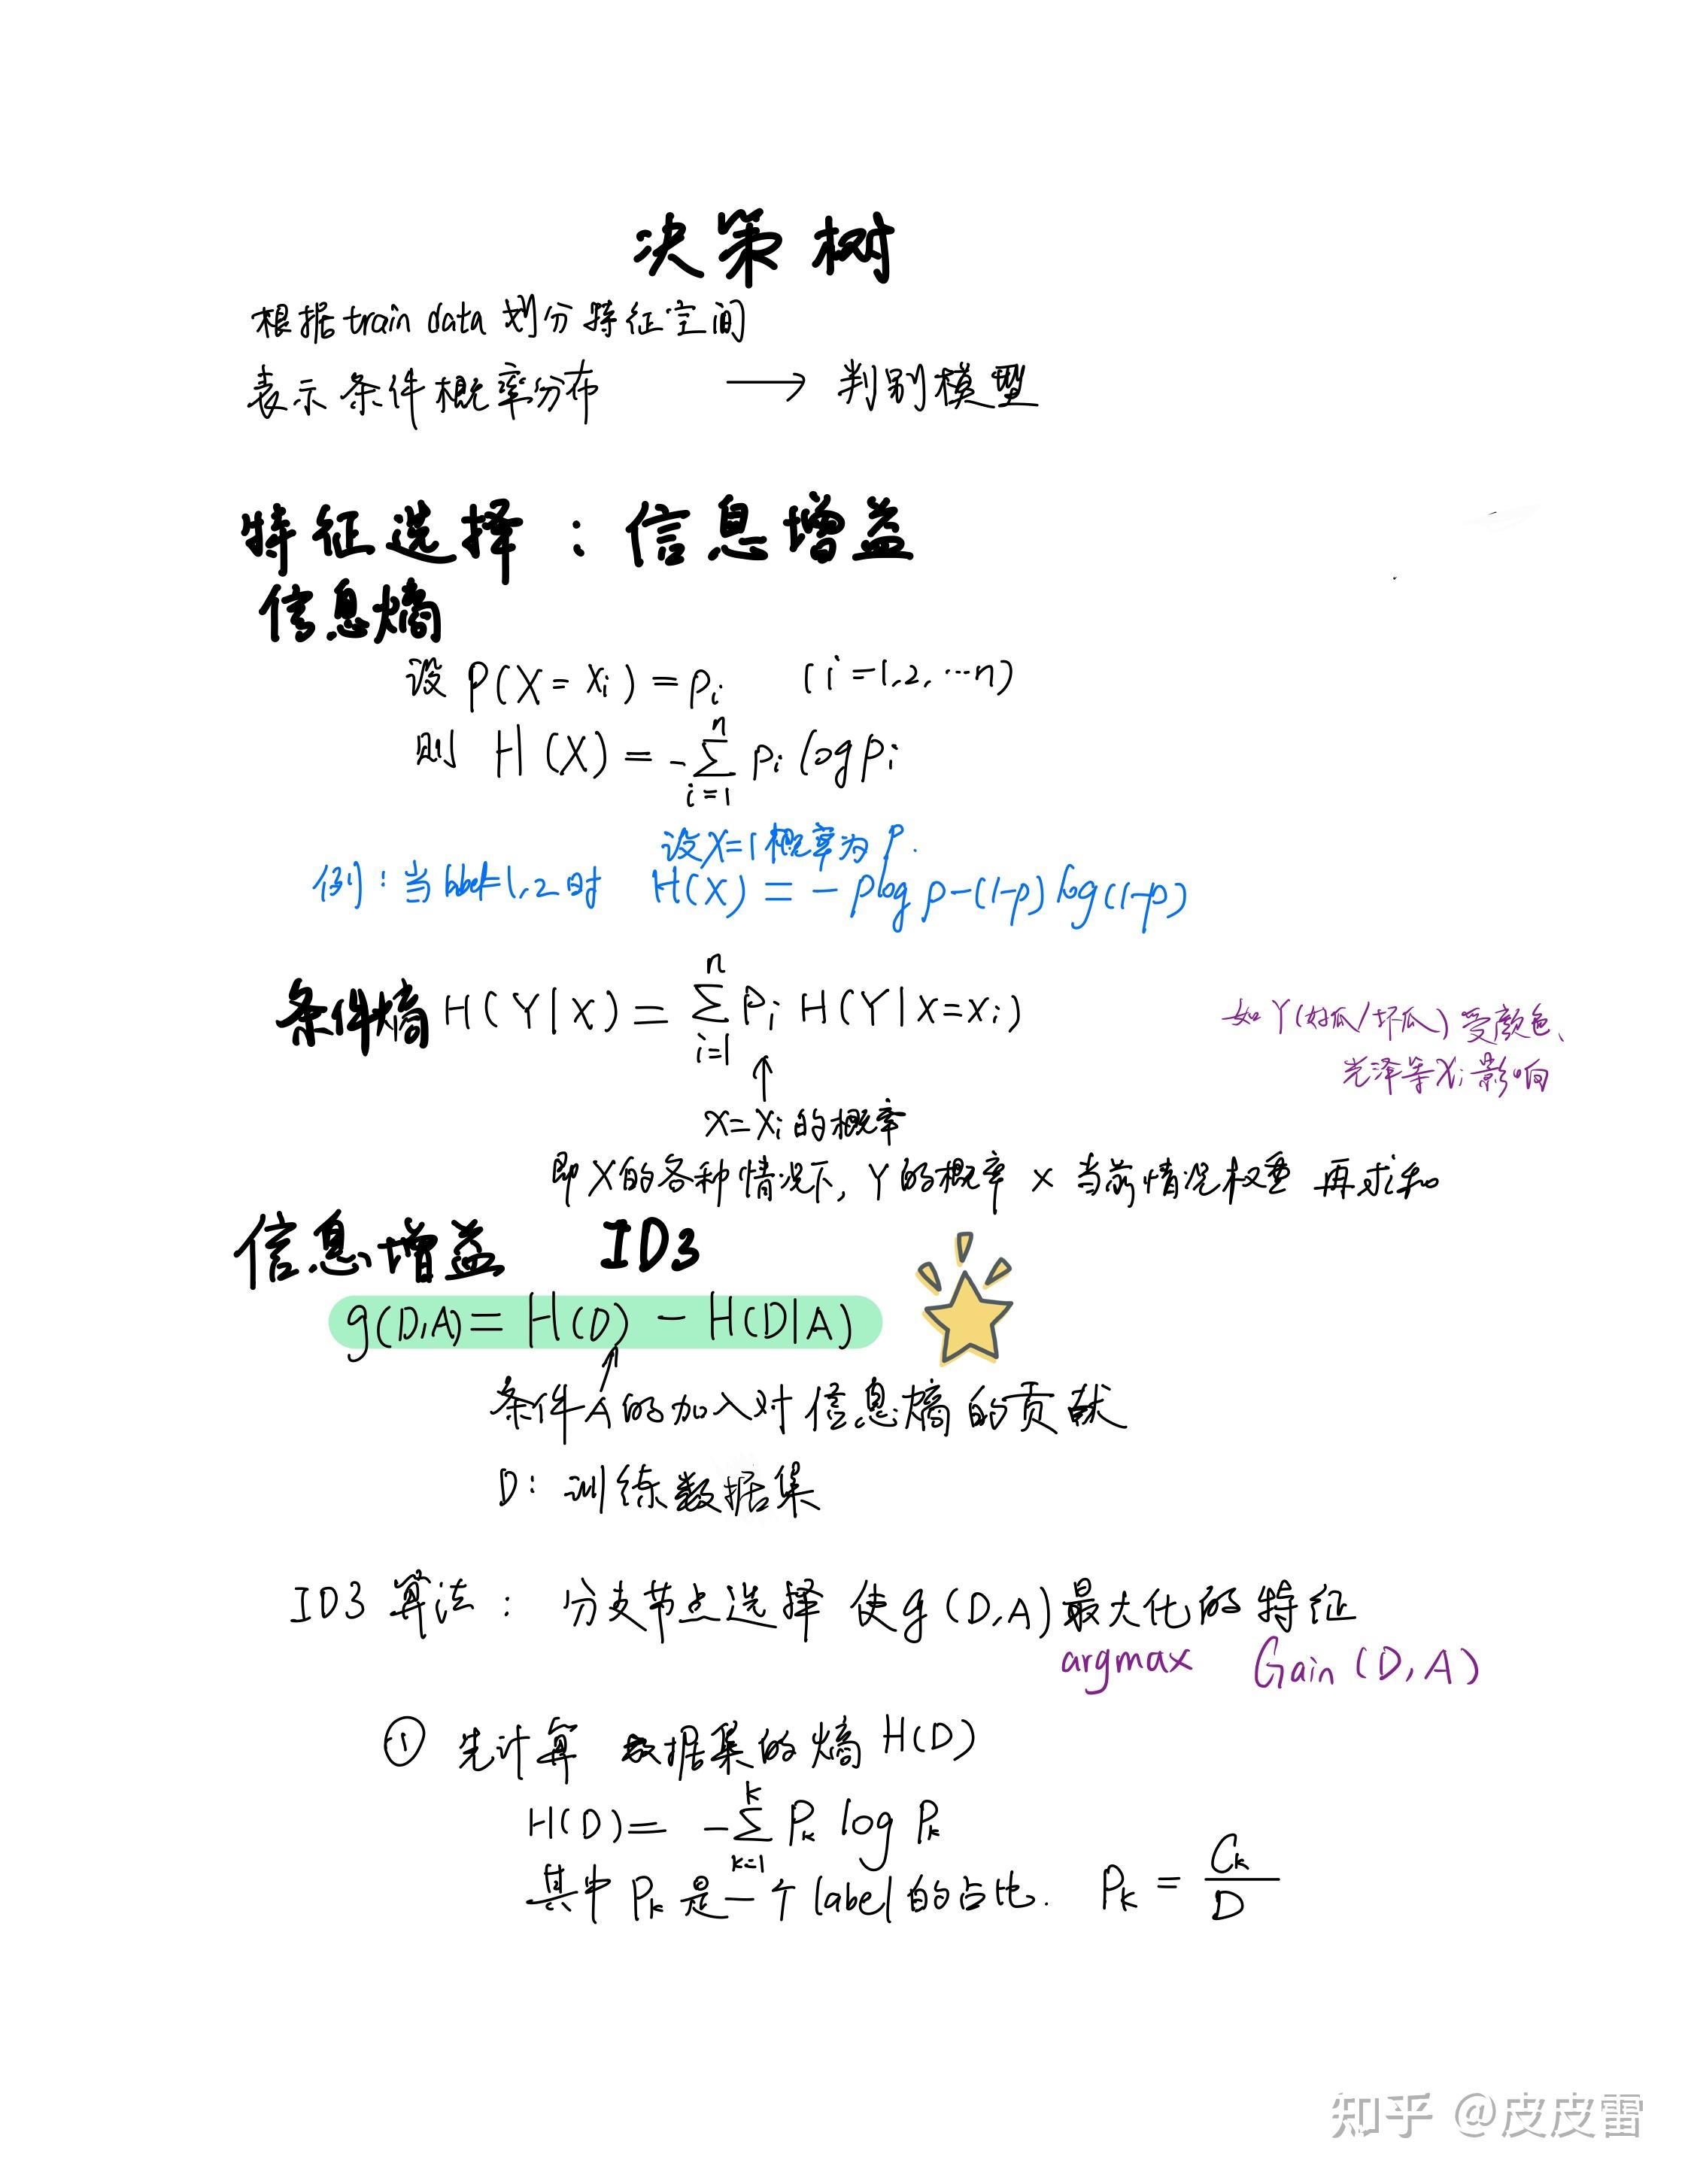 决策树
根据train data 划分特征空间
表示条件概率分布 → 判别模型
特征选择：信息增益
信息熵
设 P(X=xi)=pi (i=1,2,…n)
则 H(X)=-∑_{i=1}^{n} pi log pi
设X=1概率为P.
例：当label=1,2时 H(X)=-plog p-(1-p)log(1-p)
条件熵 H(Y|X)=∑_{i=1}^{n} Pi H(Y|X=xi)
如Y(好瓜/坏瓜)受颜色、
光泽等Xi影响
↑
X=Xi的概率
即X的各种情况下, Y的概率 × 当前情况权重 再求和
信息增益 ID3
g(D,A)=H(D)-H(D|A)
条件A的加入对信息熵的贡献
D: 训练数据集
ID3算法: 分支节点选择 使g(D,A)最大化的特征
argmax Gain(D,A)
① 先计算 数据集的熵 H(D)
H(D)= -∑_{k=1}^{k} Pk log Pk
其中 Pk 是一个label的占比. Pk = Ck/D
知乎 @皮皮雷